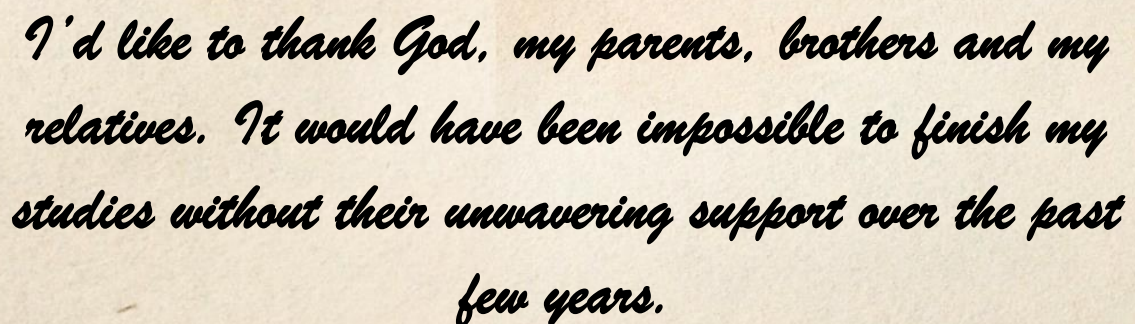 I'd like to thank God, my parents, brothers and my
relatives. It would have been impossible to finish my
studies without their unwavering support over the past
few years.